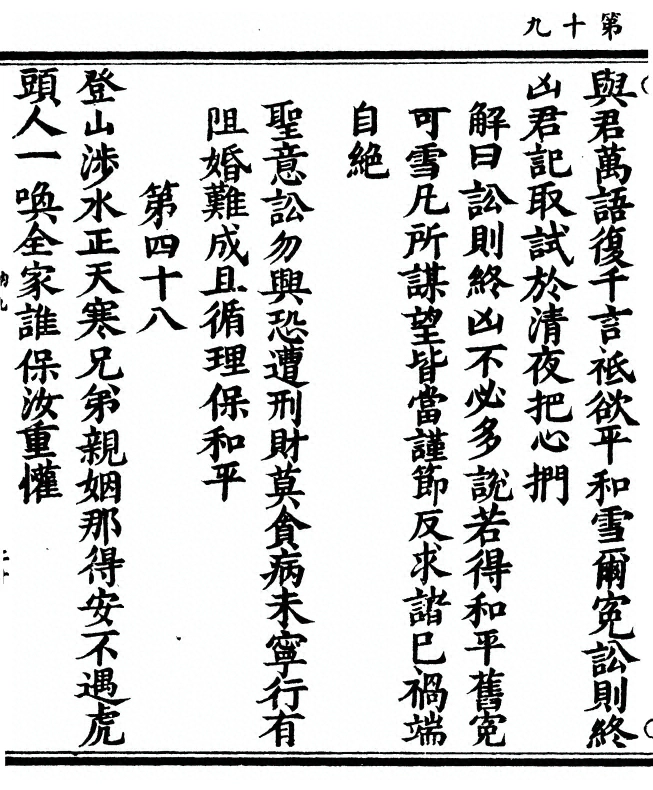 第十九
與君萬語復千言祗欲平和雪爾寃訟則終
凶君記取試於清夜把心捫
解曰訟則終凶不必多說若得和平舊寃
可雪凡所謀望皆當謹節反求諸巳禍端
自絶
聖意訟勿興恐遭刑財莫貪病未寧行有
阻婚難成且循理保和平
第四十八
登山涉水正天寒兄弟親姻那得安不遇虎
頭人一喚全家誰保汝重懽